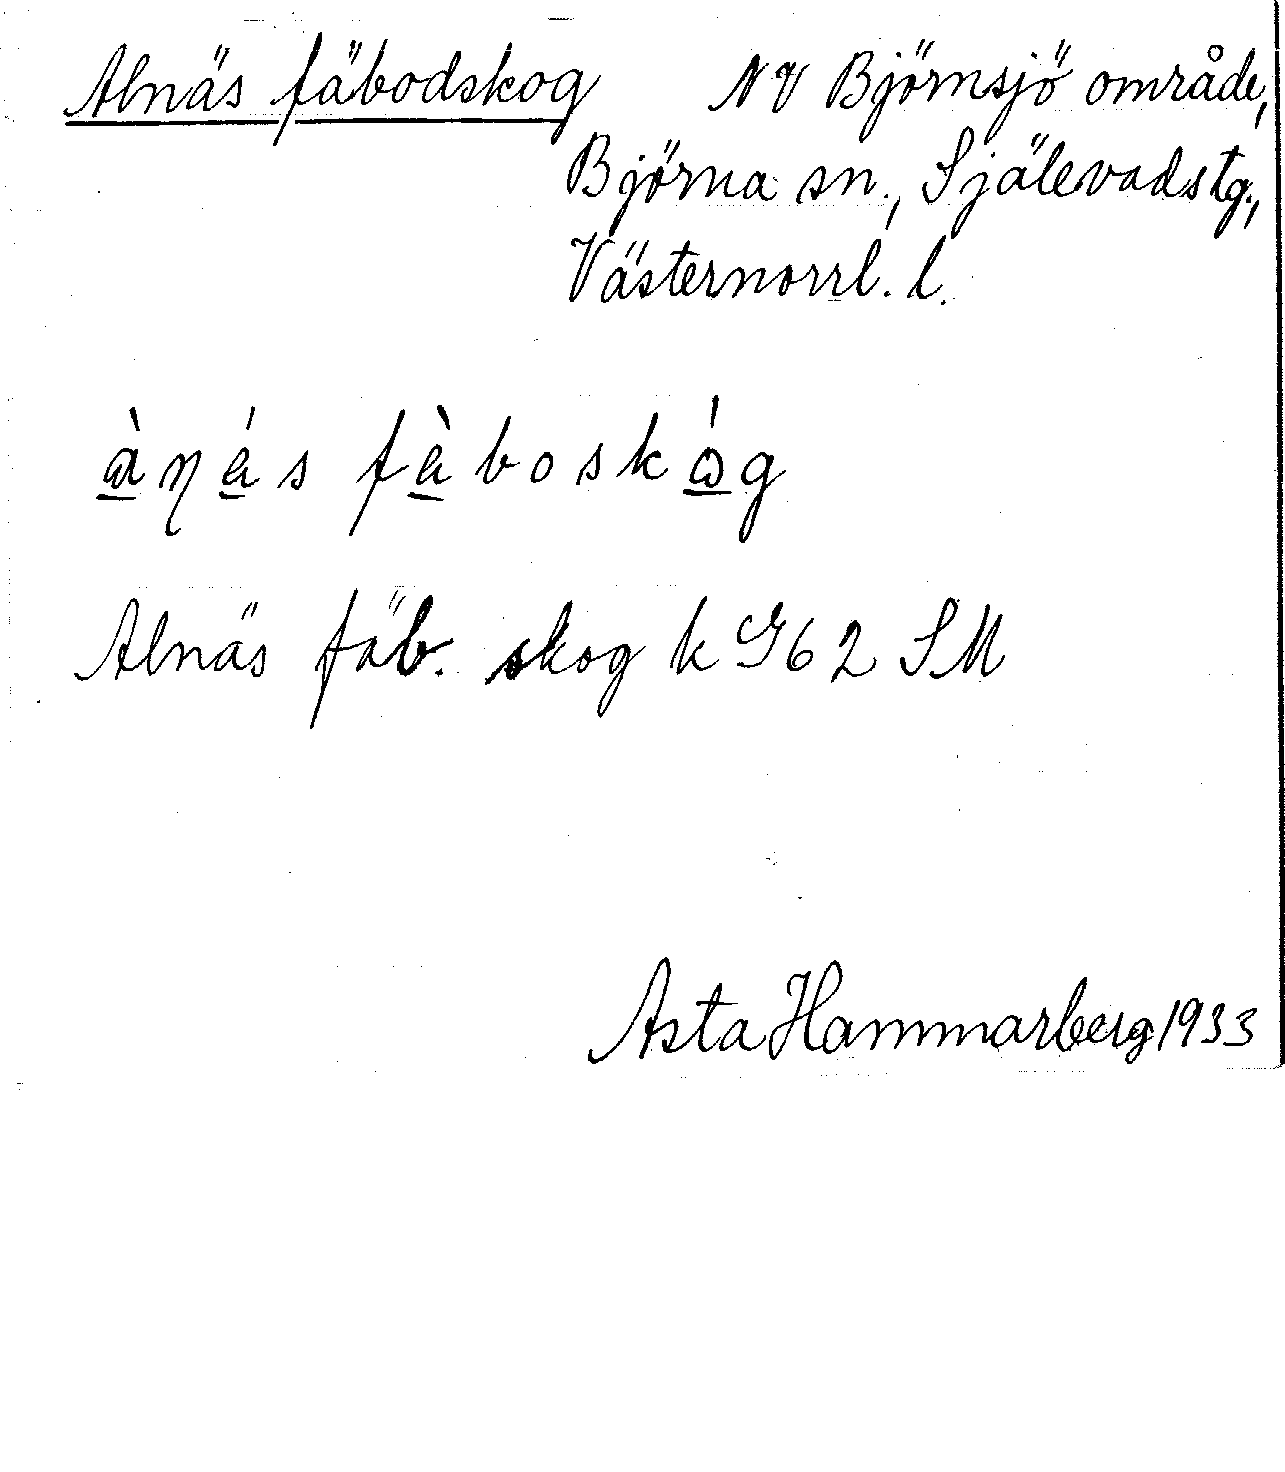 Alnäs fäbodskog NV Björnsjö område,
Björna sn., Själevadstg.,
Västernorrl. l.
Alnäs fäb. skog k G62 SM
Asta Hammarberg 1933